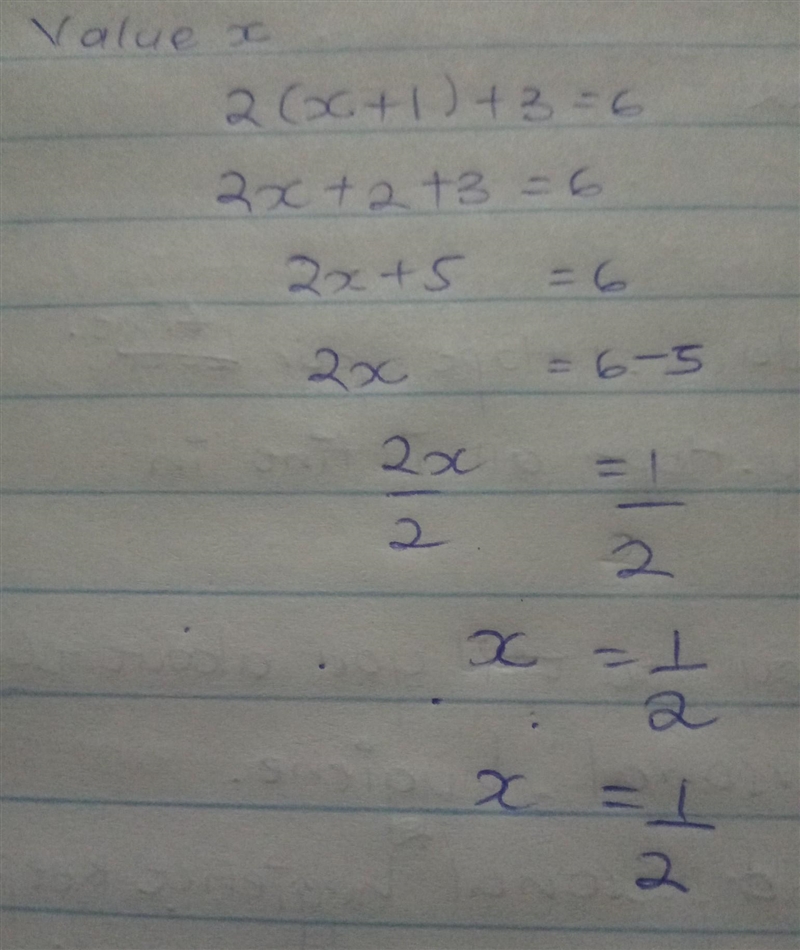 Value x
2(x+1)+3=6
2x+2+3=6
2x+5 =6
2x =6-5
2x/2 =1/2
x =1/2
x =1/2